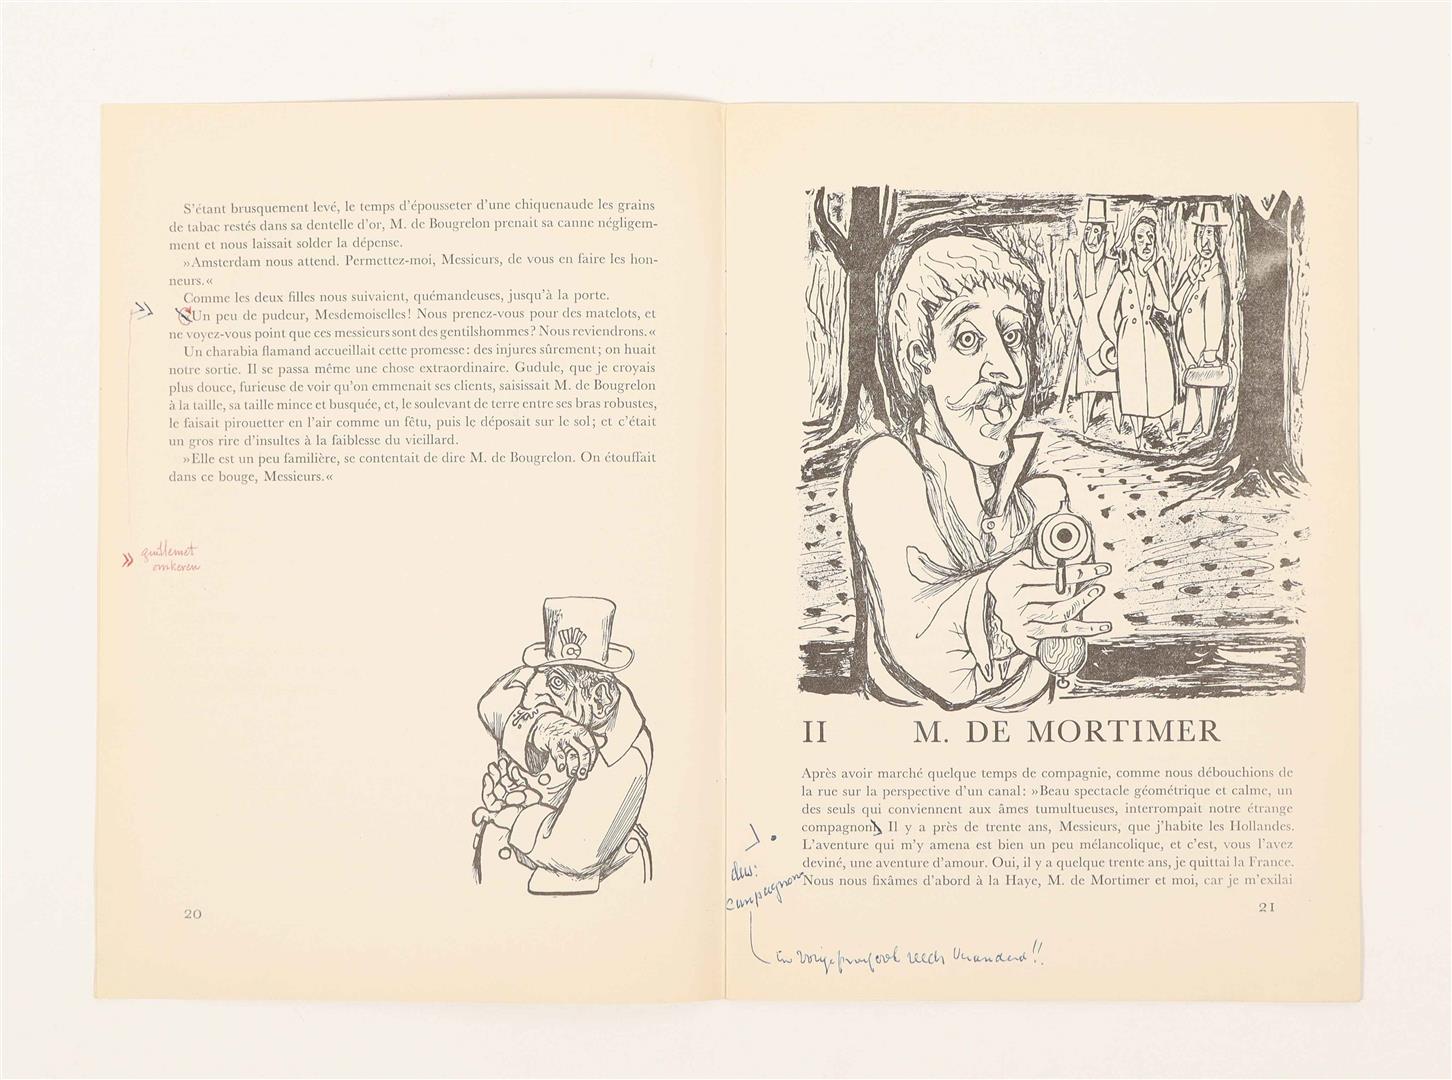 S'étant brusquement levé, le temps d'épousseter d'une chiquenaude les grains
de tabac restés dans sa dentelle d'or, M. de Bougrelon prenait sa canne négligem-
ment et nous laissait solder la dépense.
»Amsterdam nous attend. Permettez-moi, Messieurs, de vous en faire les hon-
neurs.«
Comme les deux filles nous suivaient, quémandeuses, jusqu'à la porte.
«Un peu de pudeur, Mesdemoiselles! Nous prenez-vous pour des matelots, et
ne voyez-vous point que ces messieurs sont des gentilshommes? Nous reviendrons.«
Un charabia flamand accueillait cette promesse: des injures sûrement; on huait
notre sortie. Il se passa même une chose extraordinaire. Gudule, que je croyais
plus douce, furieuse de voir qu'on emmenait ses clients, saisissait M. de Bougrelon
à la taille, sa taille mince et busquée, et, le soulevant de terre entre ses bras robustes,
le faisait pirouetter en l'air comme un fêtu, puis le déposait sur le sol; et c'était
un gros rire d'insultes à la faiblesse du vieillard.
»Elle est un peu familière, se contentait de dire M. de Bougrelon. On étouffait
dans ce bouge, Messieurs.«
»
» guillemet
omkeren
20
II M. DE MORTIMER
Après avoir marché quelque temps de compagnie, comme nous débouchions de
la rue sur la perspective d'un canal: »Beau spectacle géométrique et calme, un
des seuls qui conviennent aux âmes tumultueuses, interrompait notre étrange
compagnon. Il y a près de trente ans, Messieurs, que j'habite les Hollandes.
L'aventure qui m'y amena est bien un peu mélancolique, et c'est, vous l'avez
deviné, une aventure d'amour. Oui, il y a quelque trente ans, je quittai la France.
Nous nous fixâmes d'abord à la Haye, M. de Mortimer et moi, car je m'exilai
dus:
compagnon.
in vorige proef ook reeds veranderd!!
21